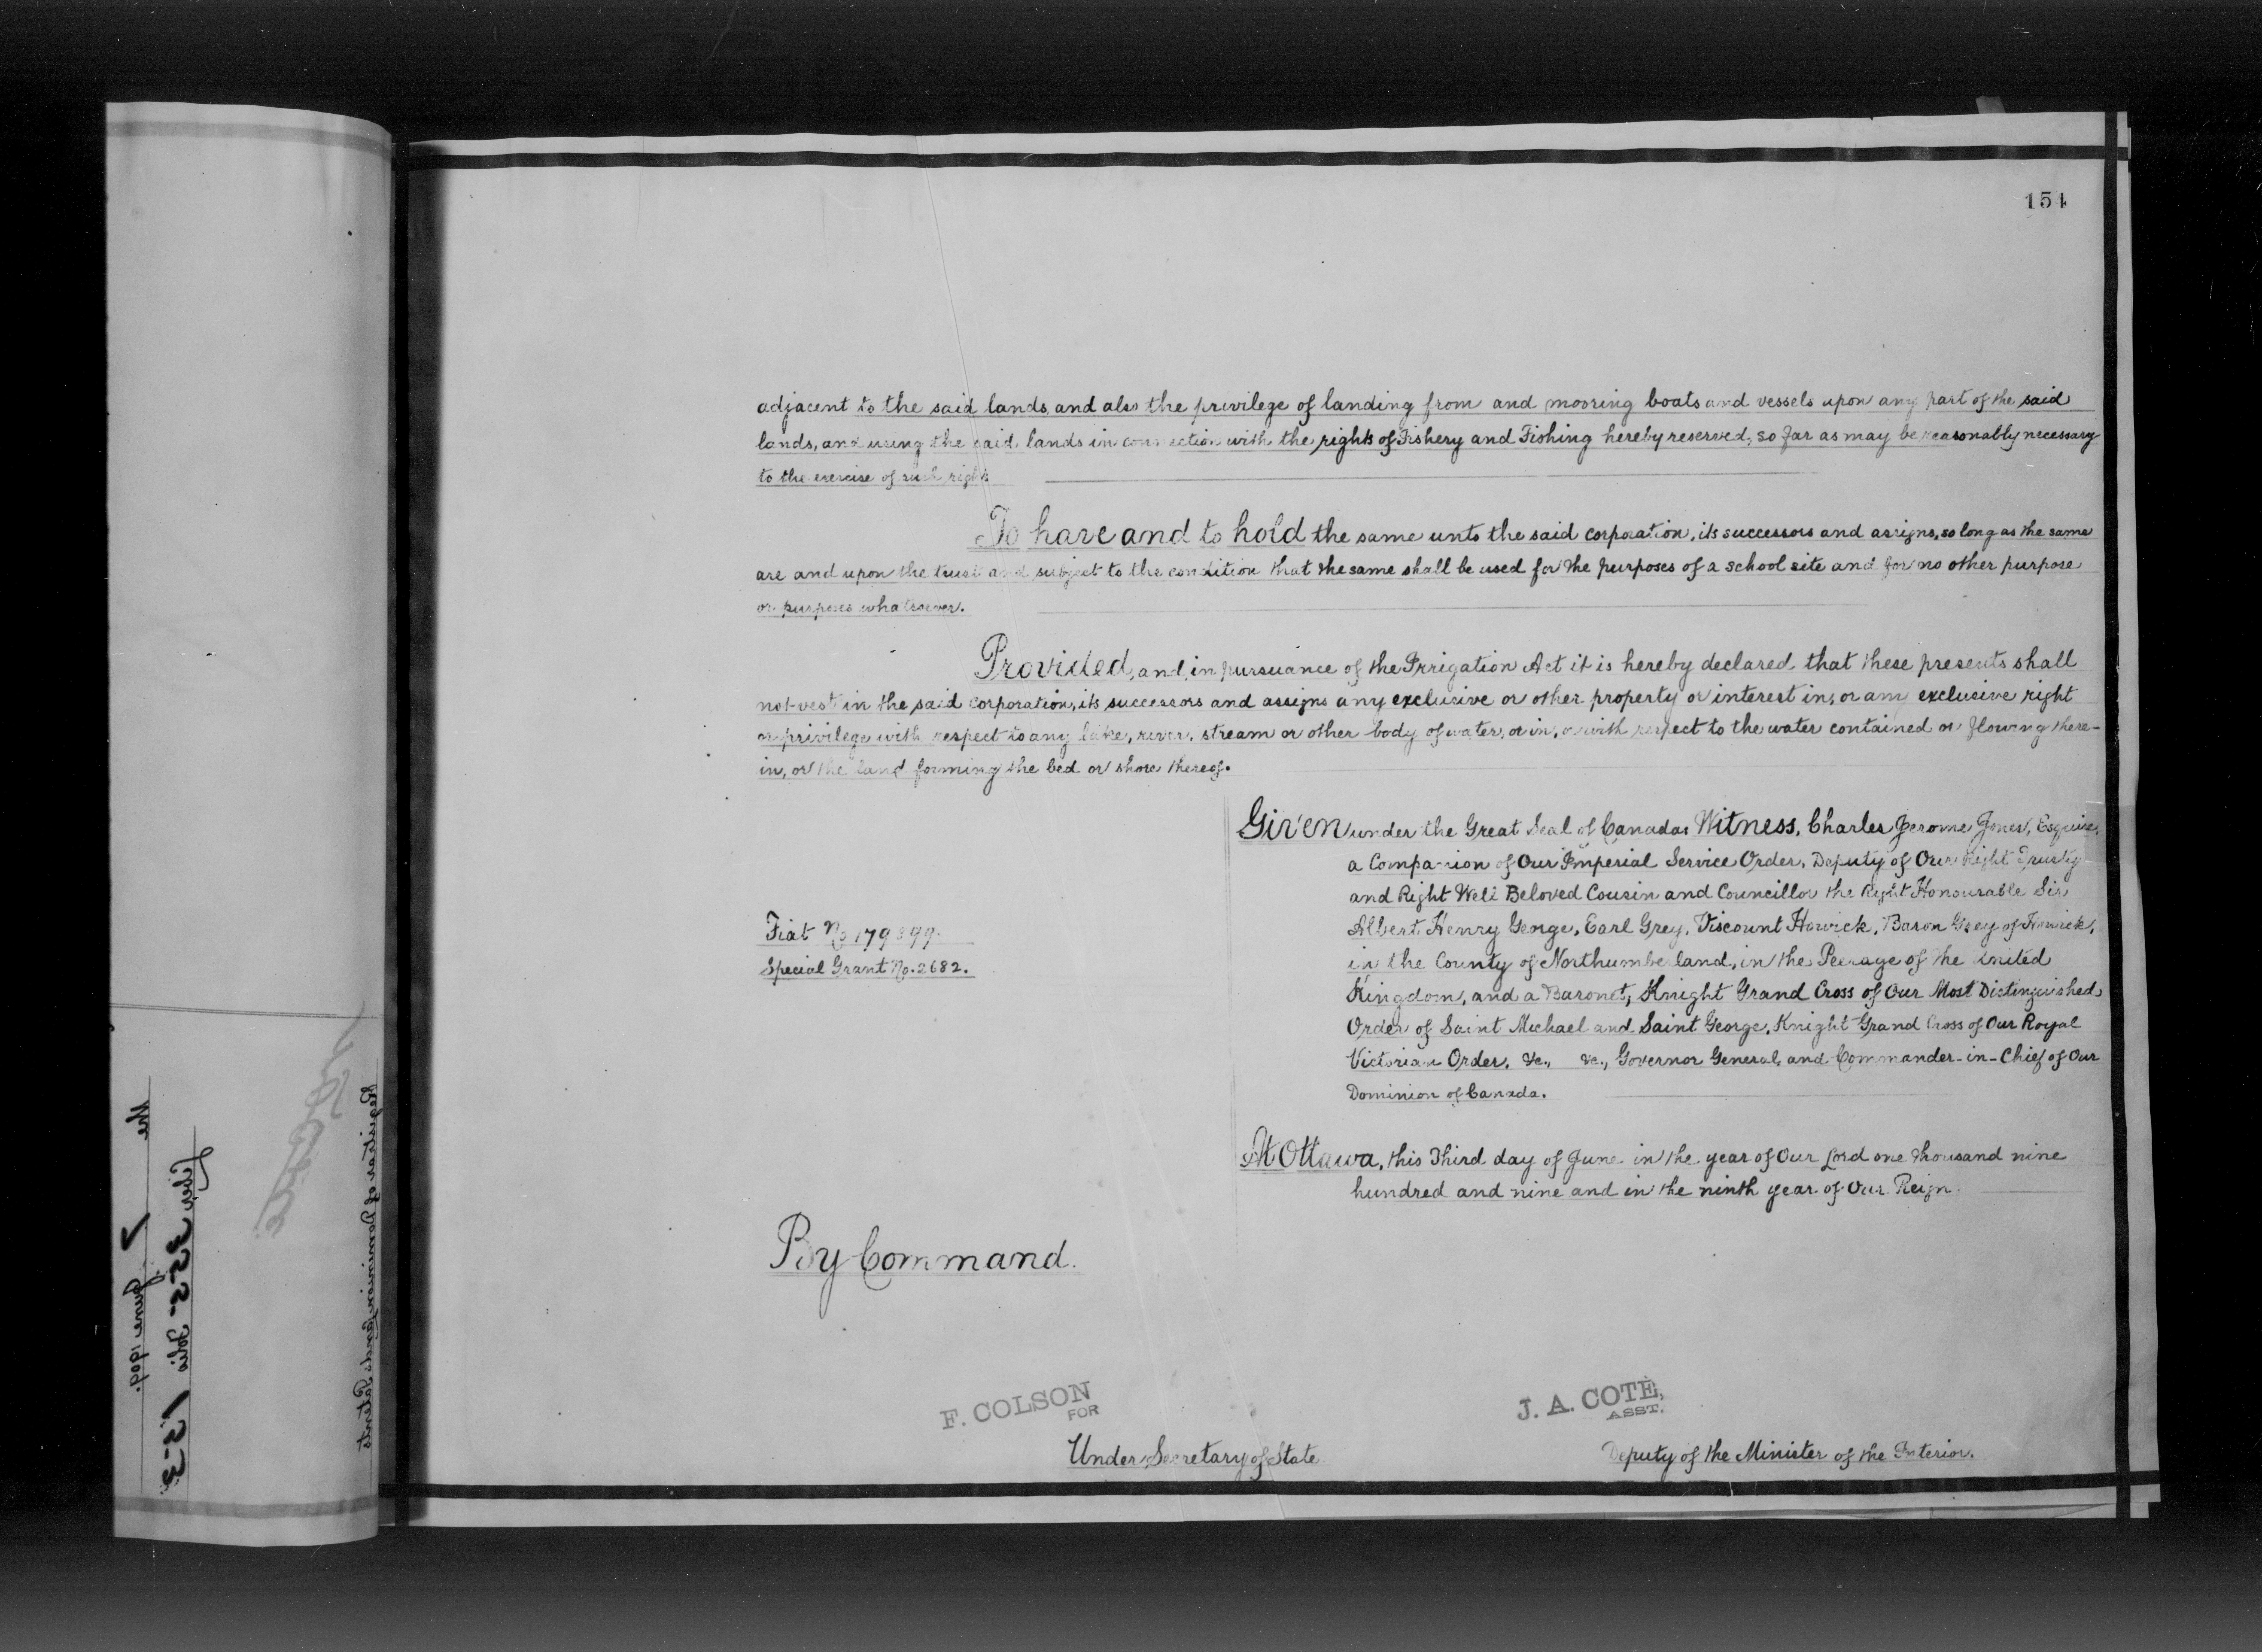 154
adjacent to the said lands, and also the privilege of landing from and mooring boats and vessels upon any part of the said
lands, and using the said lands in connection with the rights of Fishery and Fishing hereby reserved, so far as may be reasonably necessary
to the exercise of such rights
To have and to hold the same unto the said corporation, its successors and assigns, so long as the same
are and upon the trust and subject to the condition that the same shall be used for the purposes of a school site and for no other purpose
or purposes whatsoever.
Provided, and, in pursuance of the Irrigation Act it is hereby declared that these presents shall
not vest in the said corporation, its successors and assigns any exclusive or other property or interest in, or any exclusive right
or privilege with respect to any lake, river, stream or other body of water, or in, or with respect to the water contained or flowing there-
in, or the land forming the bed or shore thereof.
Given under the Great Seal of Canada: Witness, Charles Jerome Jones, Esquire,
a Companion of Our Imperial Service Order, Deputy of Our Right Trusty
and Right Well Beloved Cousin and Councillor the Right Honourable Sir
Albert Henry George, Earl Grey, Viscount Howick, Baron Grey of Howick,
in the County of Northumberland, in the Peerage of the United
Kingdom, and a Baronet, Knight Grand Cross of Our Most Distinguished
Order of Saint Michael and Saint George, Knight Grand Cross of Our Royal
Victorian Order, &c., &c., Governor General and Commander-in-Chief of Our
Dominion of Canada.
Fiat No 179
Special Grant No. 2682.
At Ottawa, this Third day of June in the year of Our Lord one thousand nine
hundred and nine and in the ninth year of Our Reign.
By Command.
F. COLSON
FOR
Under Secretary of State
J. A. COTÉ,
ASST.
Deputy of the Minister of the Interior.
the 7 June 1909.
Liber 355 Folio 153
Registrar of Dominion Lands Patents